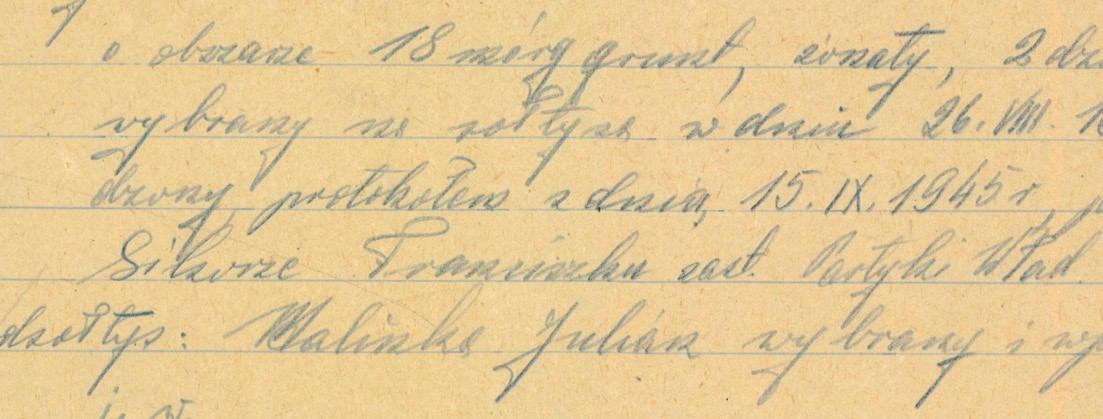 o obszarze 18 mórg grunt, żonaty, 2 dzi
wybrany na sołtysa w dniu 26. VIII. 19
dzony protokołem z dnia, 15. IX. 1945 r, p
Sikorze Franciszku zast. Partyki Wład.
dsołtys: Walinska Julian wybrany i wp